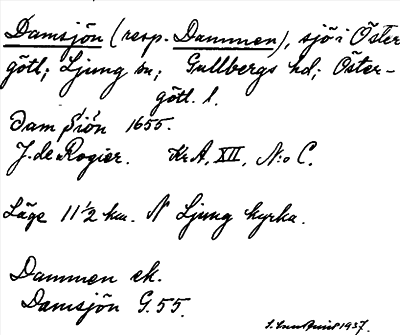 Damsjön (resp. Dammen), sjö i Öster
götl; Ljung sn; Gullbergs hd; Öster-
götl. l.
Dam Siön 1655.
J. de Rogier. Kr A, XII, N:o C.
Läge 1 1/2 km. N Ljung kyrka.
Dammen ek.
Damsjön G. 55.
1937.